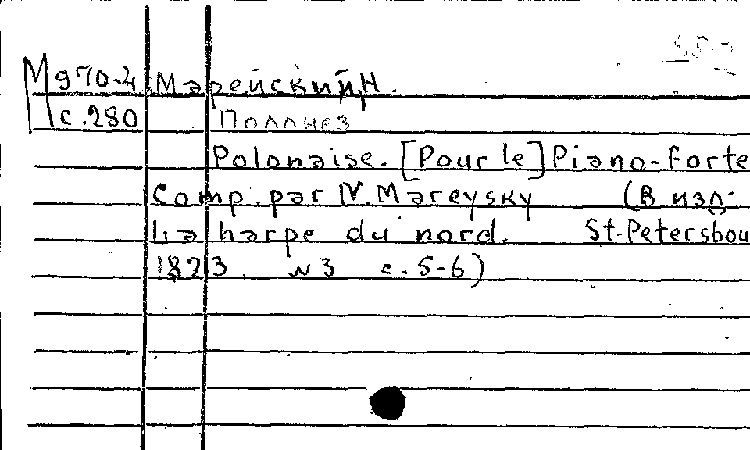 М970-4 Марейский Н.
с.280 Полонез
Polonaise. [Pour le] Piano-forte
Comp. par N. Mareysky (В изд.
La harpe du nord. St-Petersbou
1823. N 3 с. 5-6)